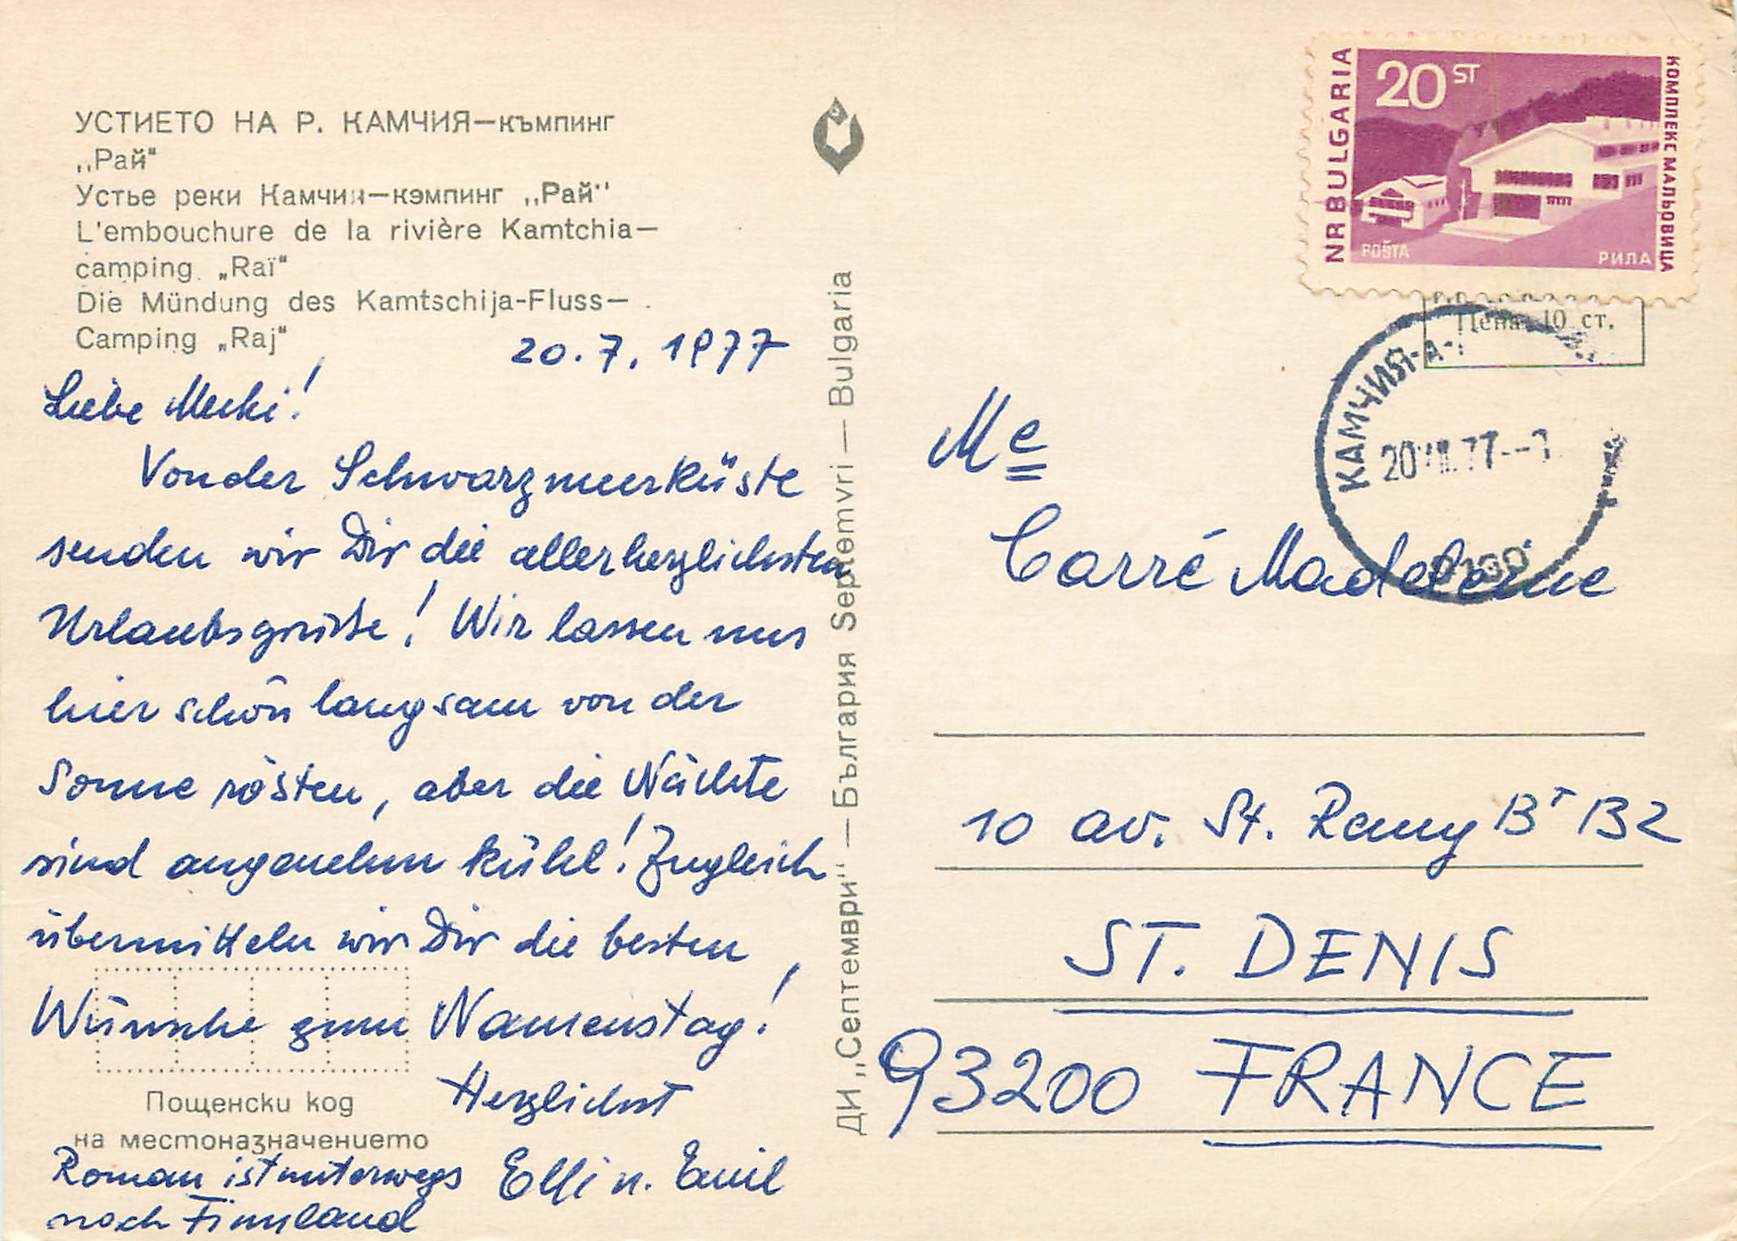 УСТИЕТО НА Р. КАМЧИЯ—къмпинг
„Рай"
Устье реки Камчии—кэмпинг „Рай"
L'embouchure de la rivière Kamtchia—
camping „Raï"
Die Mündung des Kamtschija-Fluss—
Camping „Raj"
20.7.1977
Liebe Mucki!
Von der Schwarzmeerküste
senden wir Dir die allerherzlichsten
Urlaubsgrüße! Wir lassen uns
hier schön langsam von der
Sonne rösten, aber die Nächte
sind angenehm kühl! Zugleich
übermitteln wir Dir die besten
Wünsche zum Namenstag!
Herzlichst
Elli u. Emil
Roman ist unterwegs
nach Finnland
Пощенски код
на местоназначението
ДИ „Септември" — България Septemvri — Bulgaria
NR BULGARIA
20 ST
КОМПЛЕКС МАЛЬОВИЦА
POŠTA
РИЛА
Цена 10 ст.
КАМЧИЯ-А-
20 VII.77
Me
Carré Madeleine
10 av. St. Remy BT B2
ST. DENIS
93200 FRANCE